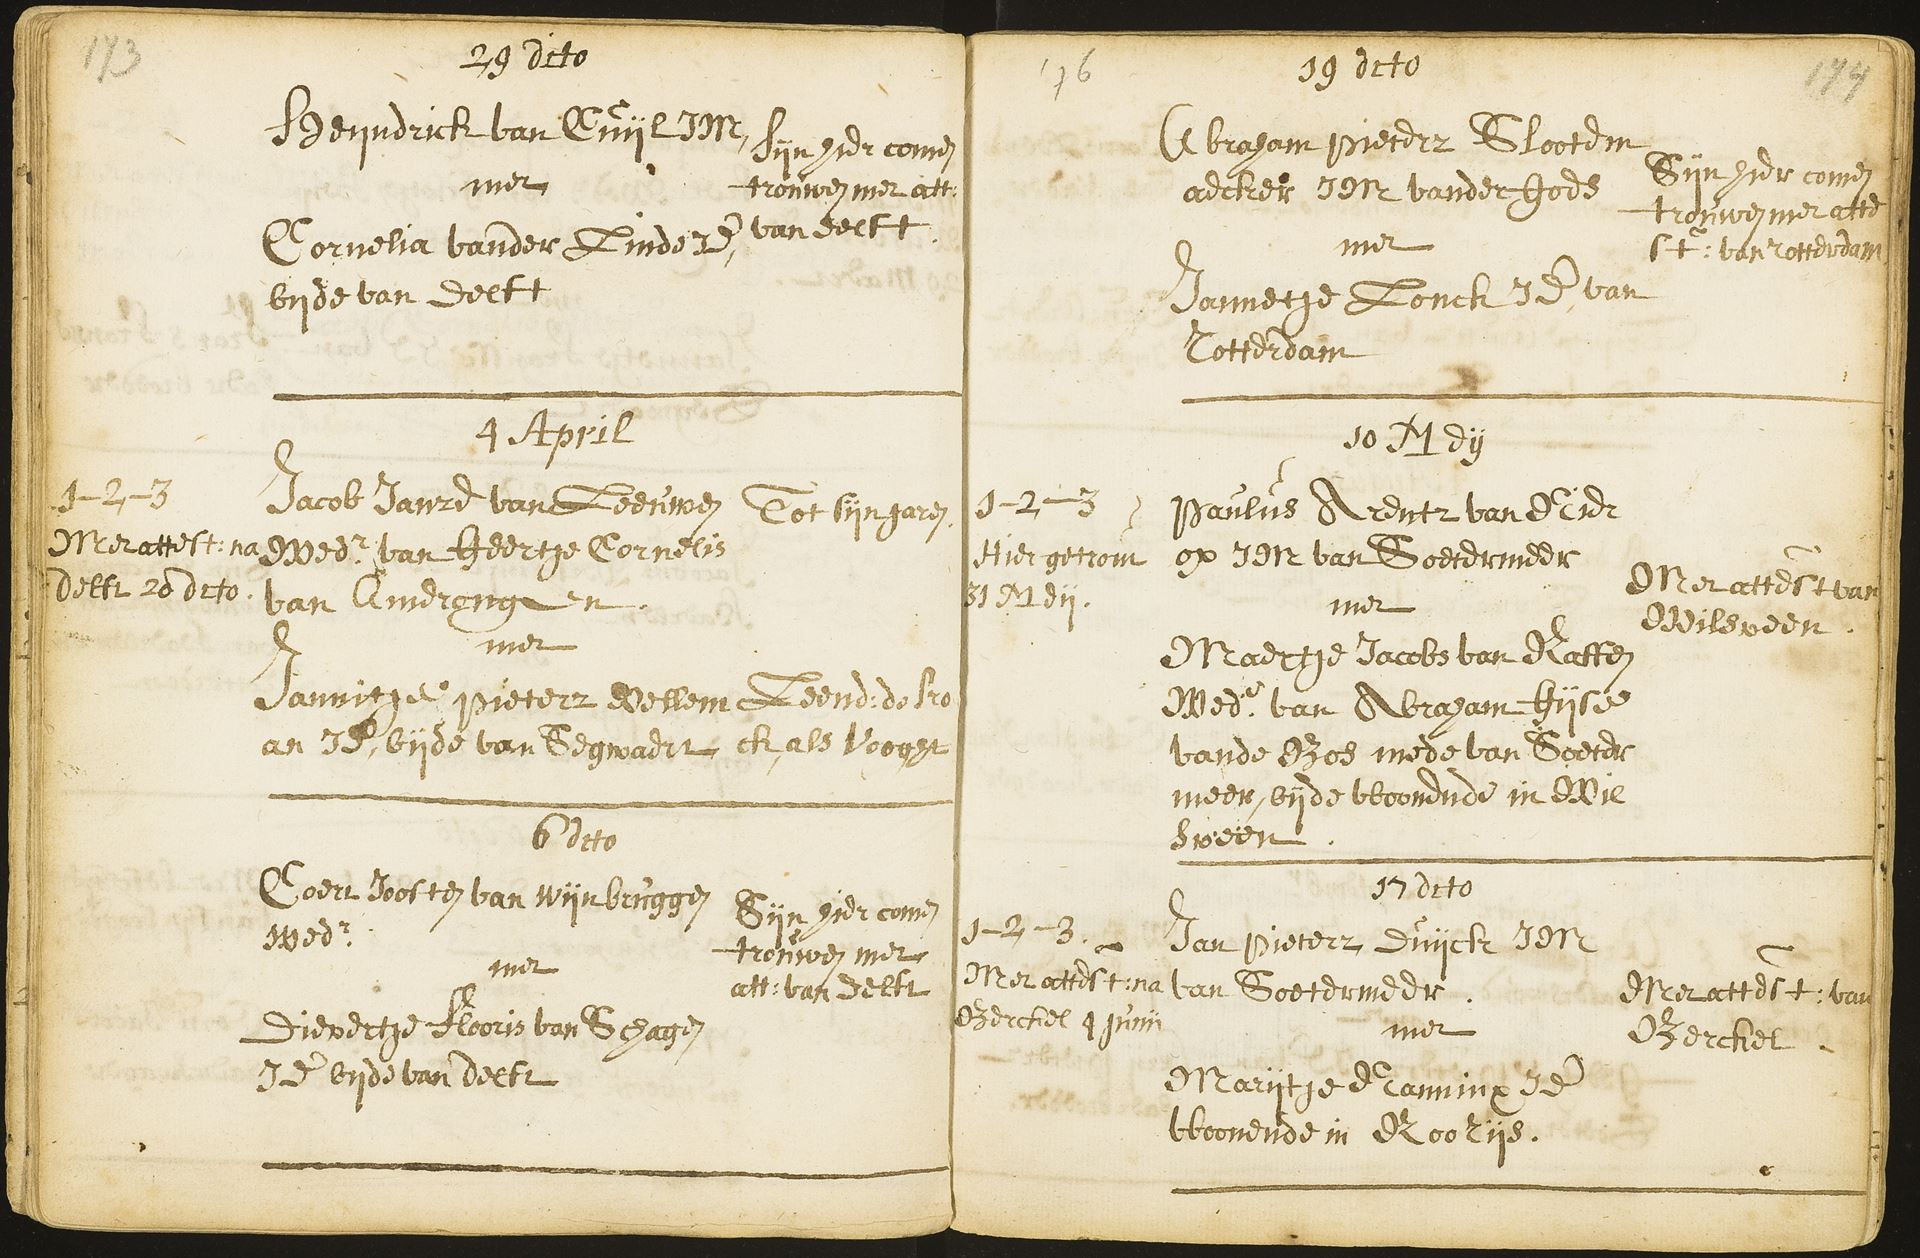 173
29 dito
Heijndrick van Cuijl JM,
met
Cornelia vander Linde JD,
bijde van Delft
Sijn hier comen
trouwen met att:
van Delft.
4 April
1-2-3
Met attest: na
Delft 20 dito.
Jacob Janz van Leeuwen
Wedr. van Geertje Cornelis
van
met
Jannitje pieterz Vellem
an JD, bijde van Segwaert
Tot sijn jaren
Leend: de Kro
ck, als Vooght
6 dito
Coert Joosten van wijnbruggen
Wedr.
met
Dievertje Flooris van Schagen
JD bijde van Delft
Sijn hier comen
trouwen met
att: van Delft
176
174
19 dito
Abraham pieterz Slootem
aecker JM vander Gods
met
Jannetje Lonck JD, van
Rotterdam
Sijn hier comen
trouwen met atte
st: van Rotterdam
10 Meij
1-2-3
Hier getrout
31 Meij.
Paulus Arentz van
op JM van Soetermeer
met
Maertje Jacobs van
Wede. van Abraham Gijse
vande Bos mede van Soeter
meer, bijde woonende in Wil
sveen.
Met attest van
Wilsveen.
17 dito
1-2-3.
Met attest: na
Berckel 4 Junij
Jan pieterz Duijck JM
van Soetermeer.
met
Marijtje JD
woonende in Roorijs.
Met attest: van
Berckel.